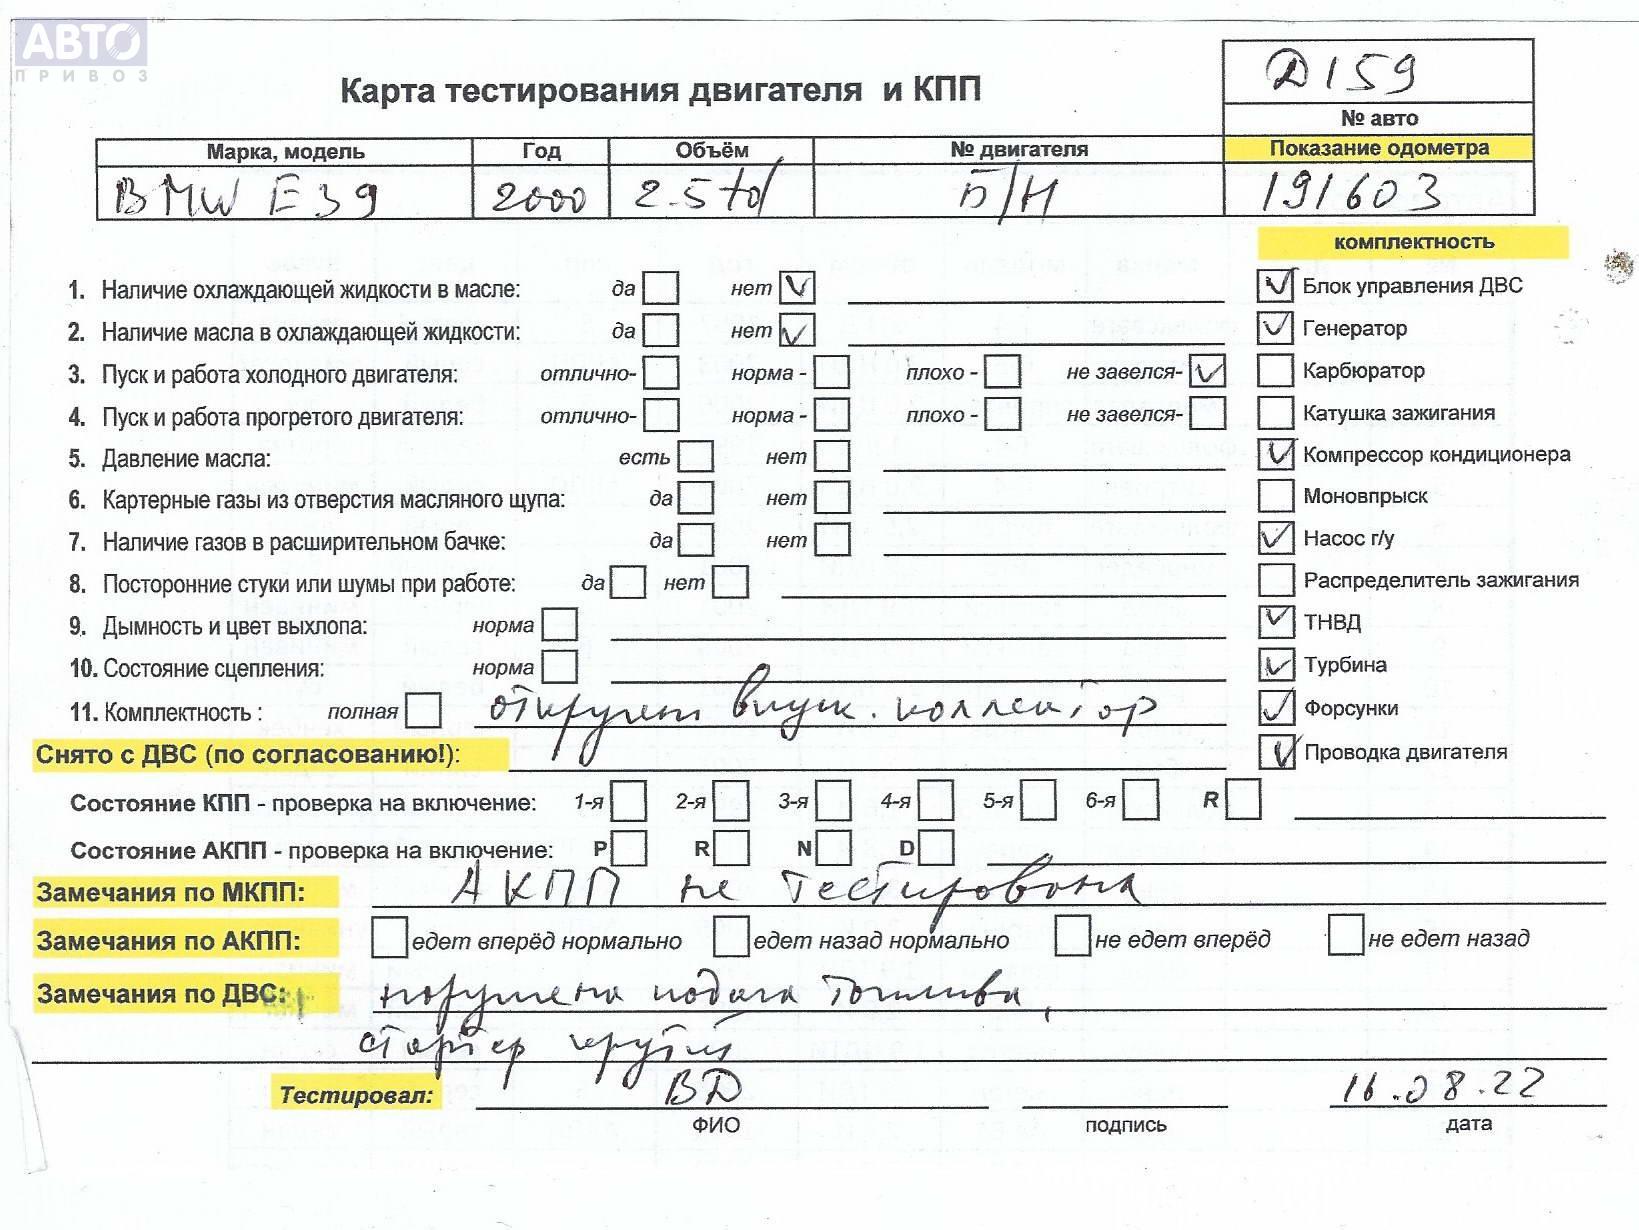 АВТО
ПРИВОЗ
Д159
Карта тестирования двигателя и КПП
№ авто
Марка, модель Год Объём № двигателя Показание одометра
BMW E39 2000 2.5td Б/Н 191603
комплектность
1. Наличие охлаждающей жидкости в масле: да нет Блок управления ДВС
2. Наличие масла в охлаждающей жидкости: да нет Генератор
3. Пуск и работа холодного двигателя: отлично- норма - плохо - не завелся- Карбюратор
4. Пуск и работа прогретого двигателя: отлично- норма - плохо - не завелся- Катушка зажигания
5. Давление масла: есть нет Компрессор кондиционера
6. Картерные газы из отверстия масляного щупа: да нет Моновпрыск
7. Наличие газов в расширительном бачке: да нет Насос г/у
8. Посторонние стуки или шумы при работе: да нет Распределитель зажигания
9. Дымность и цвет выхлопа: норма ТНВД
10. Состояние сцепления: норма Турбина
11. Комплектность : полная откручен впуск. коллектор Форсунки
Снято с ДВС (по согласованию!): Проводка двигателя
Состояние КПП - проверка на включение: 1-я 2-я 3-я 4-я 5-я 6-я R
Состояние АКПП - проверка на включение: P R N D
Замечания по МКПП: АКПП не тестирована
Замечания по АКПП: едет вперёд нормально едет назад нормально не едет вперёд не едет назад
Замечания по ДВС: нарушена подача топлива,
стартер крутит
Тестировал: ВД 16.08.22
ФИО подпись дата